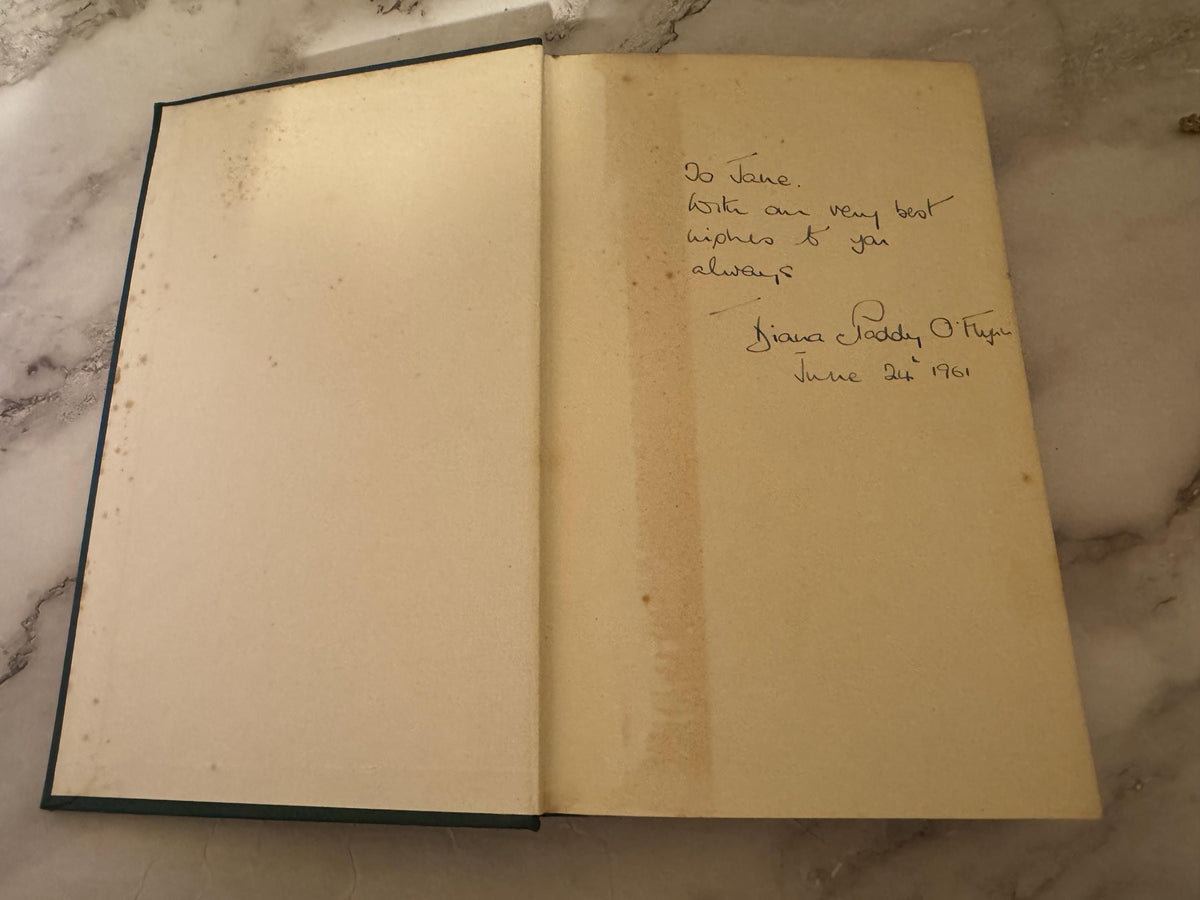 To Jane.
With our very best
wishes to you
always
Diana & Paddy O'Flynn
June 24th 1961